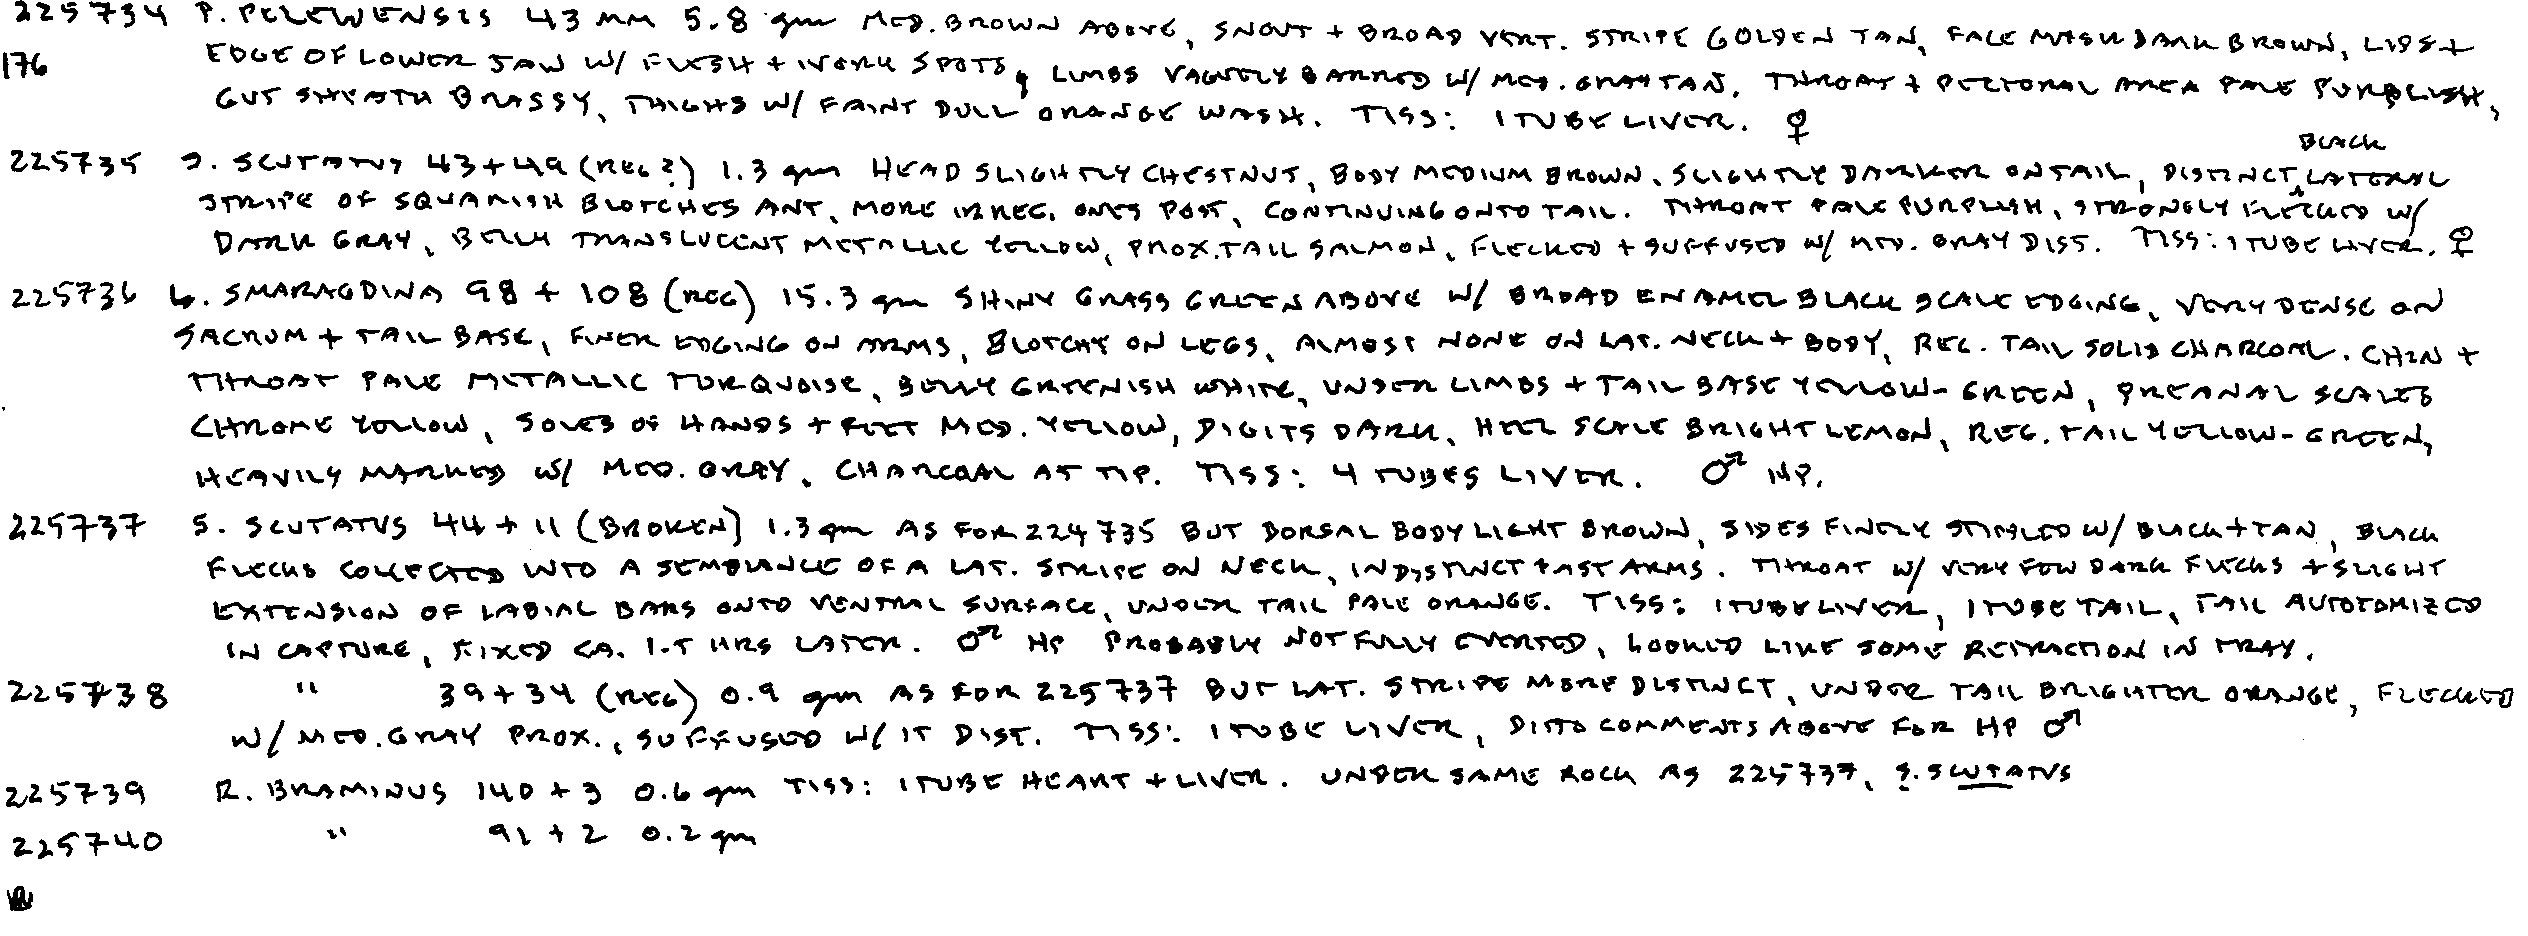 225734 P. PELEWENSIS 43 MM 5.8 gm MED. BROWN ABOVE, SNOUT + BROAD VERT. STRIPE GOLDEN TAN, FACE MASK DARK BROWN, LIPS +
176 EDGE OF LOWER JAW W/ FLESH + IVORY SPOTS, LIMBS VAGUELY BARRED W/ MED. GRAY TAN. THROAT + PECTORAL AREA PALE PURPLISH,
GUT SHEATH BRASSY, THIGHS W/ FAINT DULL ORANGE WASH. TISS: 1 TUBE LIVER. ♀
BLACK
225735 S. SCUTATUS 43 + 49 (REG?) 1.3 gm HEAD SLIGHTLY CHESTNUT, BODY MEDIUM BROWN, SLIGHTLY DARKER ON TAIL, DISTINCT ^ LATERAL
STRIPE OF SQUARISH BLOTCHES ANT, MORE IRREG. ONES POST, CONTINUING ONTO TAIL. THROAT PALE PURPLISH, STRONGLY FLECKED W/
DARK GRAY, BELLY TRANSLUCENT METALLIC YELLOW, PROX. TAIL SALMON, FLECKED + SUFFUSED W/ MED. GRAY DIST. TISS: 1 TUBE LIVER. ♀
225736 L. SMARAGDINA 98 + 108 (REG) 15.3 gm SHINY GRASS GREEN ABOVE W/ BROAD ENAMEL BLACK SCALE EDGING, VERY DENSE ON
SACRUM + TAIL BASE, FINER EDGING ON ARMS, BLOTCHY ON LEGS, ALMOST NONE ON LAT. NECK + BODY, REG. TAIL SOLID CHARCOAL. CHIN +
THROAT PALE METALLIC TURQUOISE, BELLY GREENISH WHITE, UNDER LIMBS + TAIL BASE YELLOW-GREEN, PREANAL SCALES
CHROME YELLOW, SOLES OF HANDS + FEET MED. YELLOW, DIGITS DARK, HEEL SCALE BRIGHT LEMON, REG. TAIL YELLOW-GREEN,
HEAVILY MARKED W/ MED. GRAY, CHARCOAL AT TIP. TISS: 4 TUBES LIVER. ♂ HP.
225737 S. SCUTATUS 44 + 11 (BROKEN) 1.3 gm AS FOR 224735 BUT DORSAL BODY LIGHT BROWN, SIDES FINELY STIPPLED W/ BLACK + TAN, BLACK
FLECKS COLLECTED INTO A SEMBLANCE OF A LAT. STRIPE ON NECK, INDISTINCT PAST ARMS. THROAT W/ VERY FEW DARK FLECKS + SLIGHT
EXTENSION OF LABIAL BARS ONTO VENTRAL SURFACE, UNDER TAIL PALE ORANGE. TISS: 1 TUBE LIVER, 1 TUBE TAIL, TAIL AUTOTOMIZED
IN CAPTURE, FIXED CA. 1.5 HRS LATER. ♂ HP PROBABLY NOT FULLY EVERTED, LOOKED LIKE SOME RETRACTION IN TRAY.
225738 " 39 + 34 (REG) 0.9 gm AS FOR 225737 BUT LAT. STRIPE MORE DISTINCT, UNDER TAIL BRIGHTER ORANGE, FLECKED
W/ MED. GRAY PROX., SUFFUSED W/ IT DIST. TISS: 1 TUBE LIVER, DITTO COMMENTS ABOVE FOR HP ♂
225739 R. BRAMINUS 140 + 3 0.6 gm TISS: 1 TUBE HEART + LIVER. UNDER SAME ROCK AS 225737, S. SCUTATUS
225740 " 91 + 2 0.2 gm